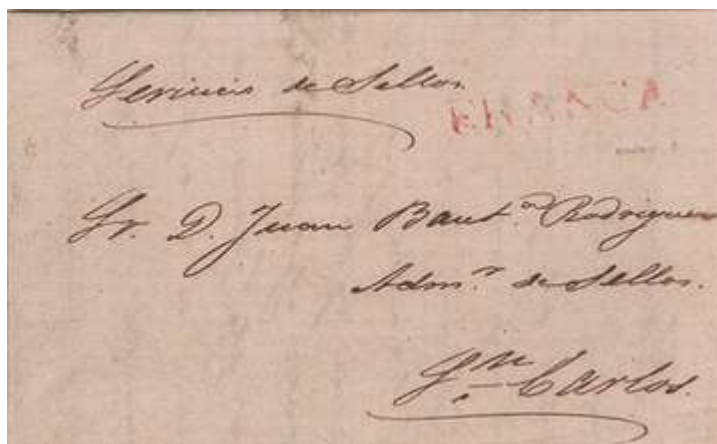 Servicio de Sellos
Sr. D. Juan Baut.ª Rodriguez
Adm.r de Sellos.
Sn. Carlos.